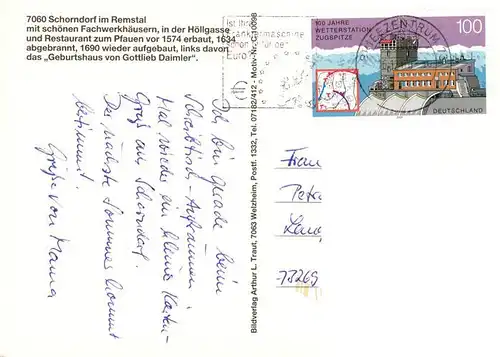 7060 Schorndorf im Remstal
mit schönen Fachwerkhäusern, in der Höllgasse
und Restaurant zum Pfauen vor 1574 erbaut, 1634
abgebrannt, 1690 wieder aufgebaut, links davon
das „Geburtshaus von Gottlieb Daimler“.
Ich bin gerade beim
Schreibtisch-Aufräumen
Mal wieder ein kleiner Karten-
Gruß aus Schorndorf.
Der nächste Sommer kommt
bestimmt.
Grüße von Mama
Bildverlag Arthur L. Traut, 7063 Welzheim, Postf. 1332, Tel. 07182/412 - Motiv-Nr.
Ist Ihre
Frankiermaschine
schon für den
Euro
BRIEFZENTRUM
100 JAHRE
WETTERSTATION
ZUGSPITZE
100
DEUTSCHLAND
Frau
Petra
73269